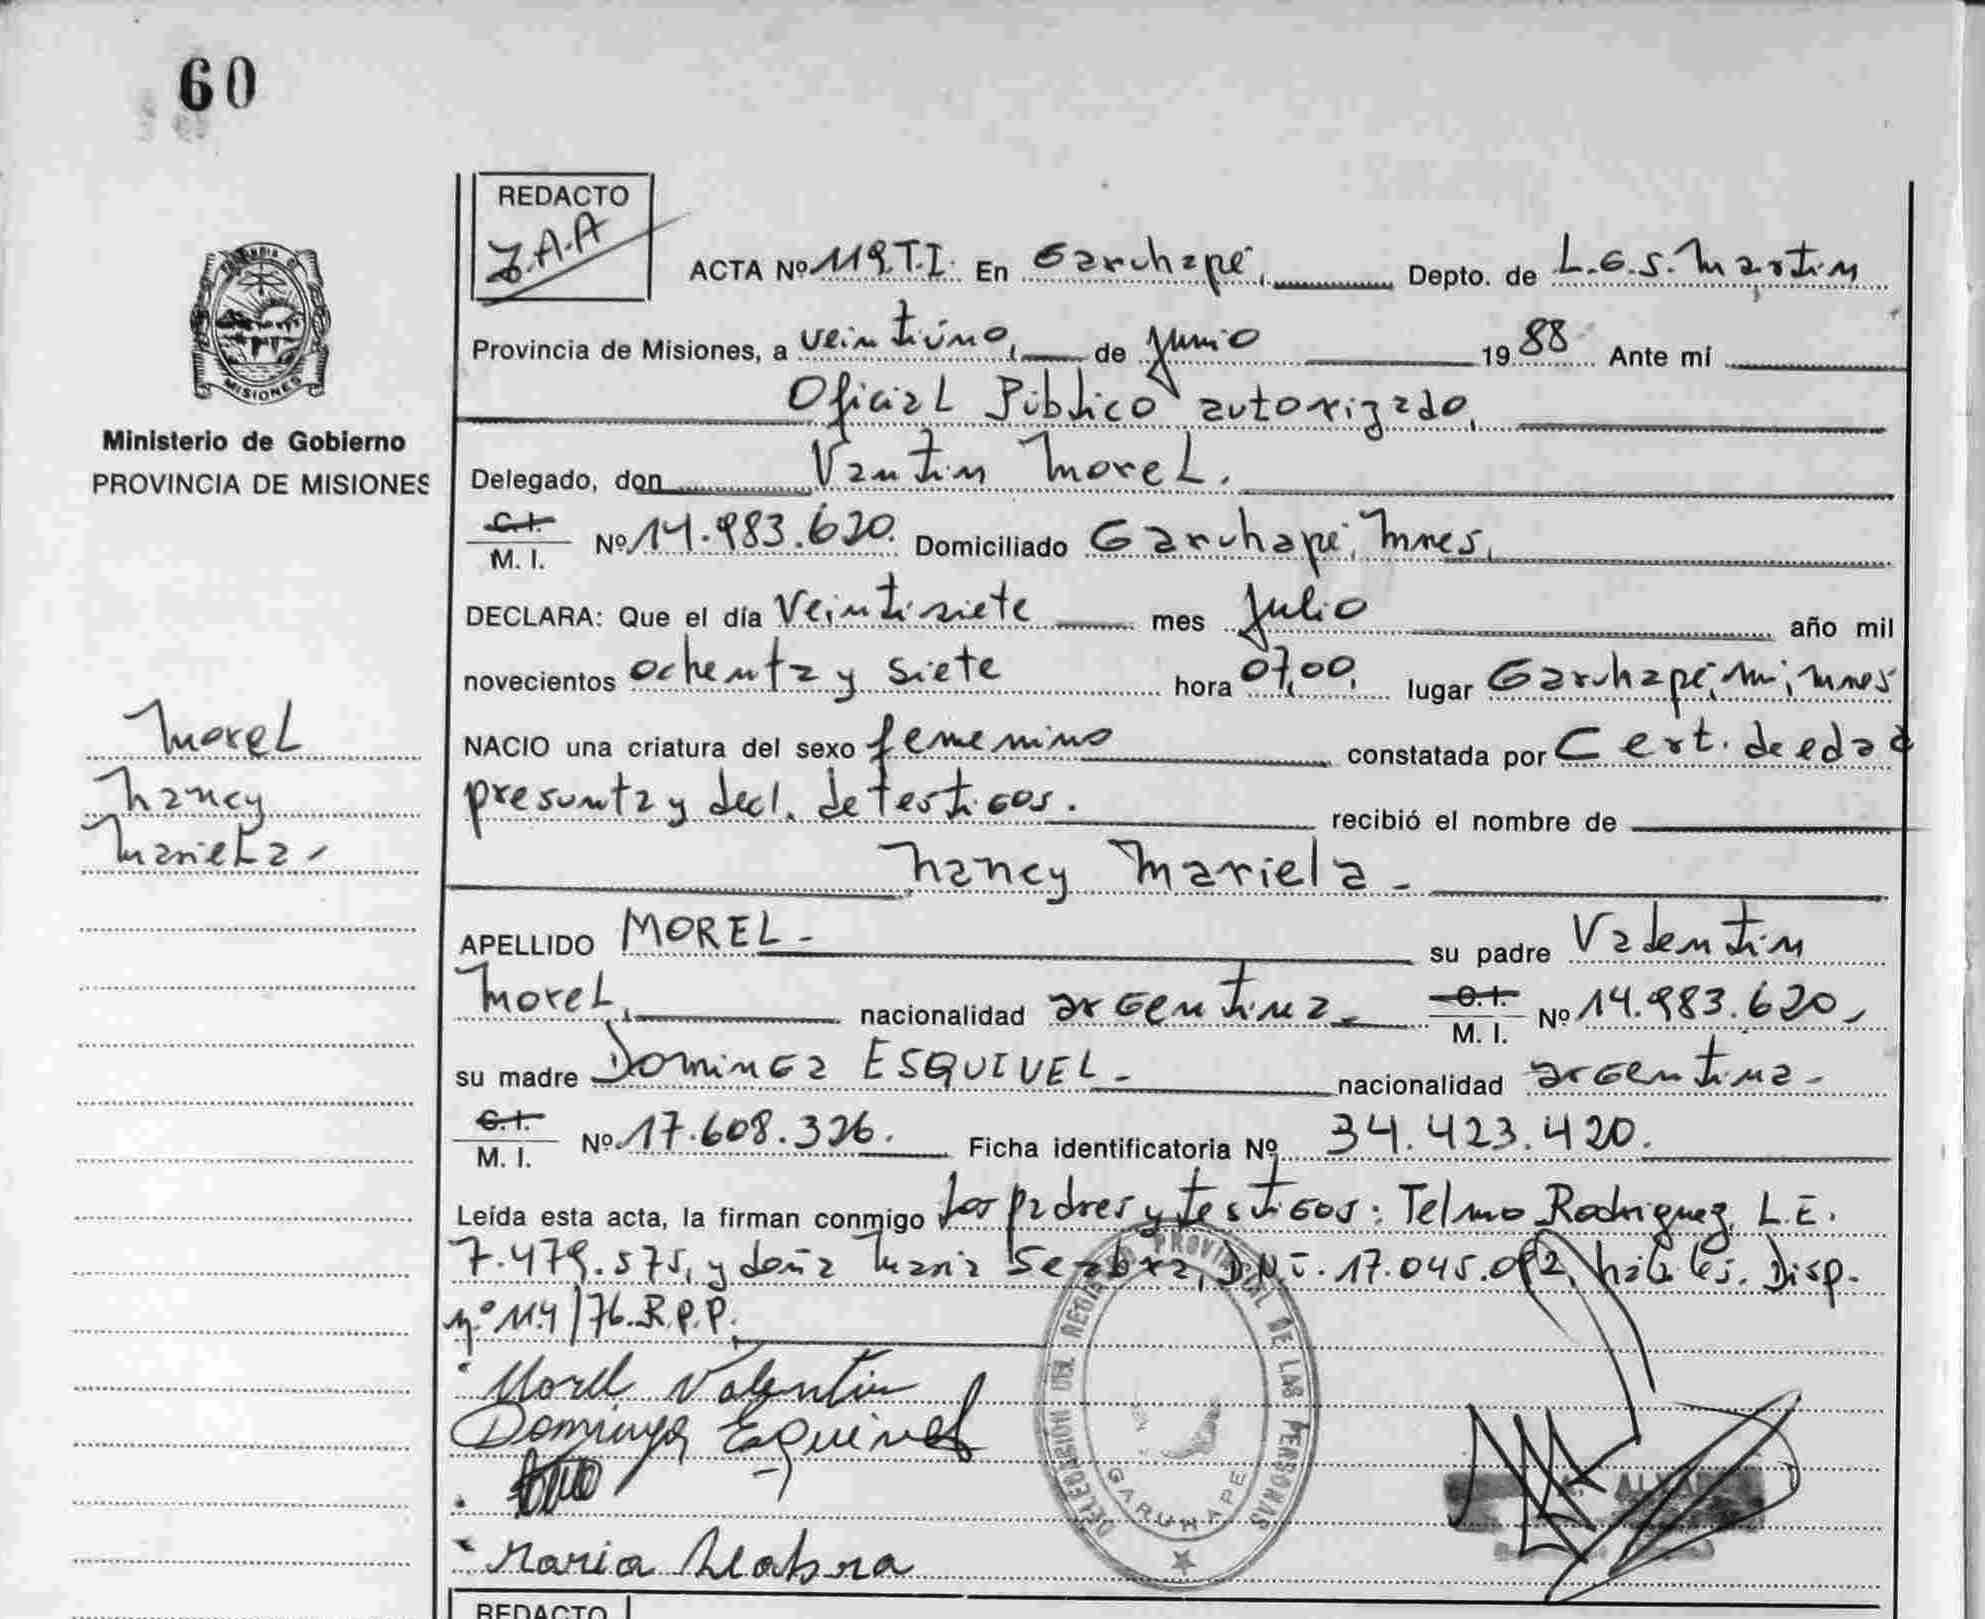 60
REDACTO
Z.A.A
ACTA Nº 119.T.I. En Garuhapé, Depto. de L.G.S. Martin
Provincia de Misiones, a veintiúno, de Junio 1988. Ante mí
Oficial Público autorizado,
Delegado, don Vantin Morel.
C.I.
M. I. Nº 14.983.620. Domiciliado Garuhapé, Mnes,
DECLARA: Que el día Veintisiete mes Julio año mil
novecientos ochenta y siete hora 07,00, lugar Garuhapé, mi, mnes
NACIO una criatura del sexo femenino constatada por Cert. de edad
presunta y decl. de testigos. recibió el nombre de
Nancy Mariela -
APELLIDO MOREL - su padre Valentin
Morel, nacionalidad argentina - C.I.
M. I. Nº 14.983.620,
su madre Dominga ESQUIVEL - nacionalidad argentina -
C.I.
M. I. Nº 17.608.326. Ficha identificatoria Nº 34.423.420.
Leída esta acta, la firman conmigo los padres y testigos: Telmo Rodriguez, L.E.
7.479.575, y doña Maria Seabra, D.N.I. 17.045.092, hábiles. Disp.
nº 114/76.R.P.P.
Morel Valentin
Dominga Esquivel
Maria Seabra
MISIONES
Ministerio de Gobierno
PROVINCIA DE MISIONES
Morel
Nancy
Mariela -
DELEGACION DEL REGISTRO PROVINCIAL DE LAS PERSONAS
GARUHAPE
REDACTO